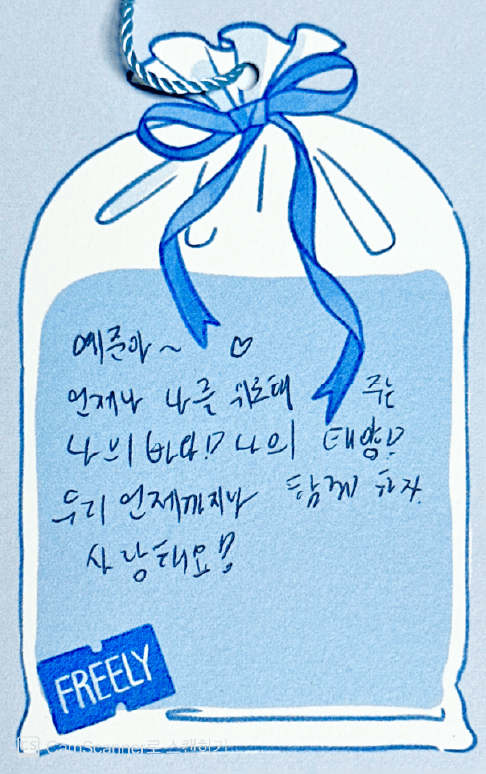 예준아 ~ ♡
언제나 나를 위로해 주는
나의 바다♡ 나의 태양♡
우리 언제까지나 함께 하자.
사랑해요♡
FREELY
CS CamScanner로 스캔하기